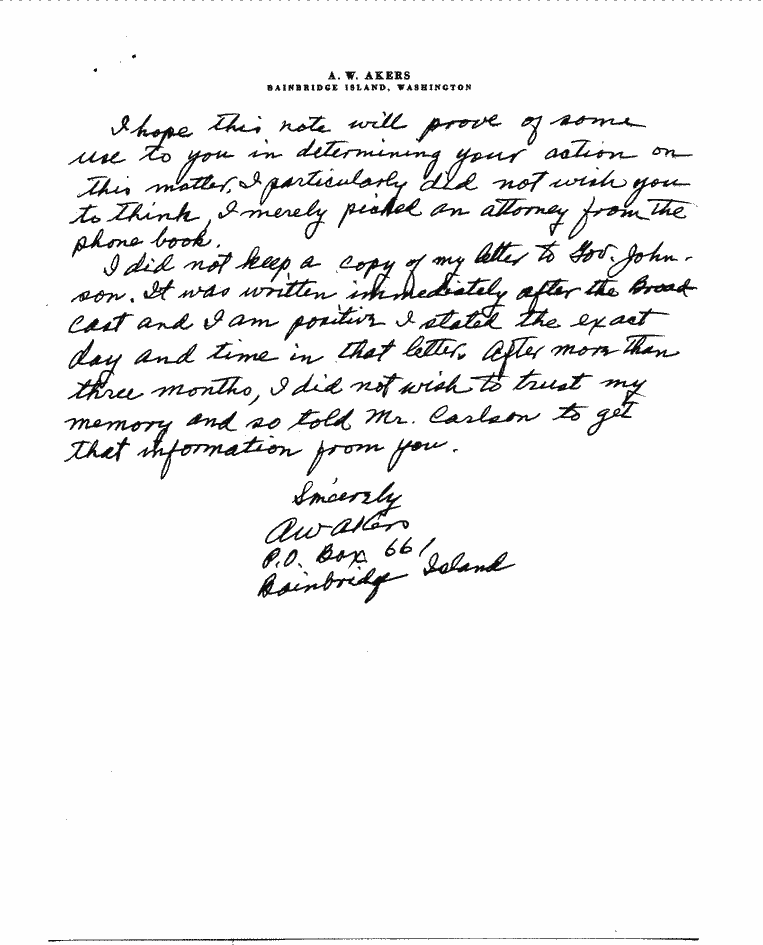 A. W. AKERS
BAINBRIDGE ISLAND, WASHINGTON
I hope this note will prove of some
use to you in determining your action on
this matter. I particularly did not wish you
to think, I merely picked an attorney from the
phone book.
I did not keep a copy of my letter to Gov. John-
son. It was written immediately after the Broad
cast and I am positive I stated the exact
day and time in that letter. After more than
three months, I did not wish to trust my
memory and so told Mr. Carlson to get
that information from you.
Sincerely
AW Akers
P.O. Box 661
Bainbridge Island